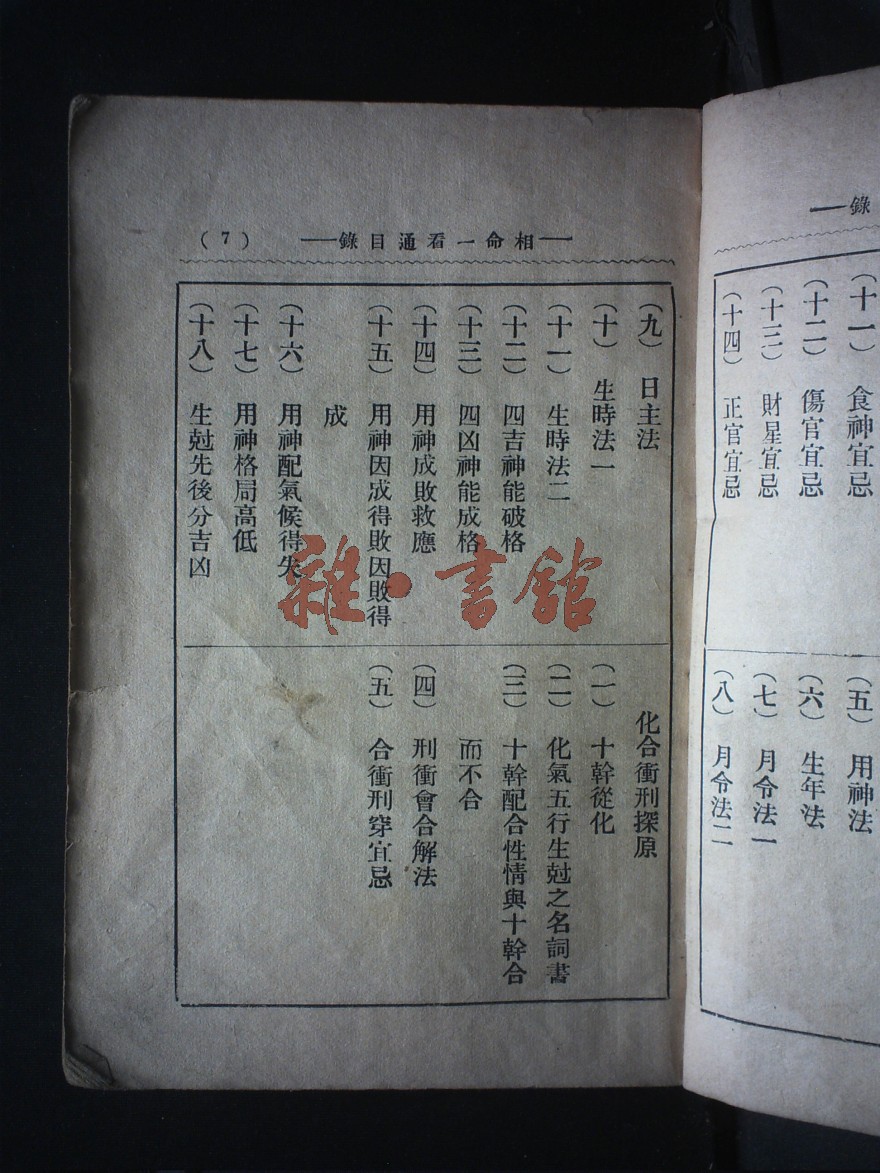 錄——
(十一) 食神宜忌
(十二) 傷官宜忌
(十三) 財星宜忌
(十四) 正官宜忌
(五) 用神法
(六) 生年法
(七) 月令法一
(八) 月令法二
——相命一看通目錄——
(7)
(九) 日主法
(十) 生時法一
(十一) 生時法二
(十二) 四吉神能破格
(十三) 四凶神能成格
(十四) 用神成敗救應
(十五) 用神因成得敗因敗得
成
(十六) 用神配氣候得失
(十七) 用神格局高低
(十八) 生尅先後分吉凶
化合衝刑探原
(一) 十幹從化
(二) 化氣五行生尅之名詞書
(三) 十幹配合性情與十幹合
而不合
(四) 刑衝會合解法
(五) 合衝刑穿宜忌
雜·書館